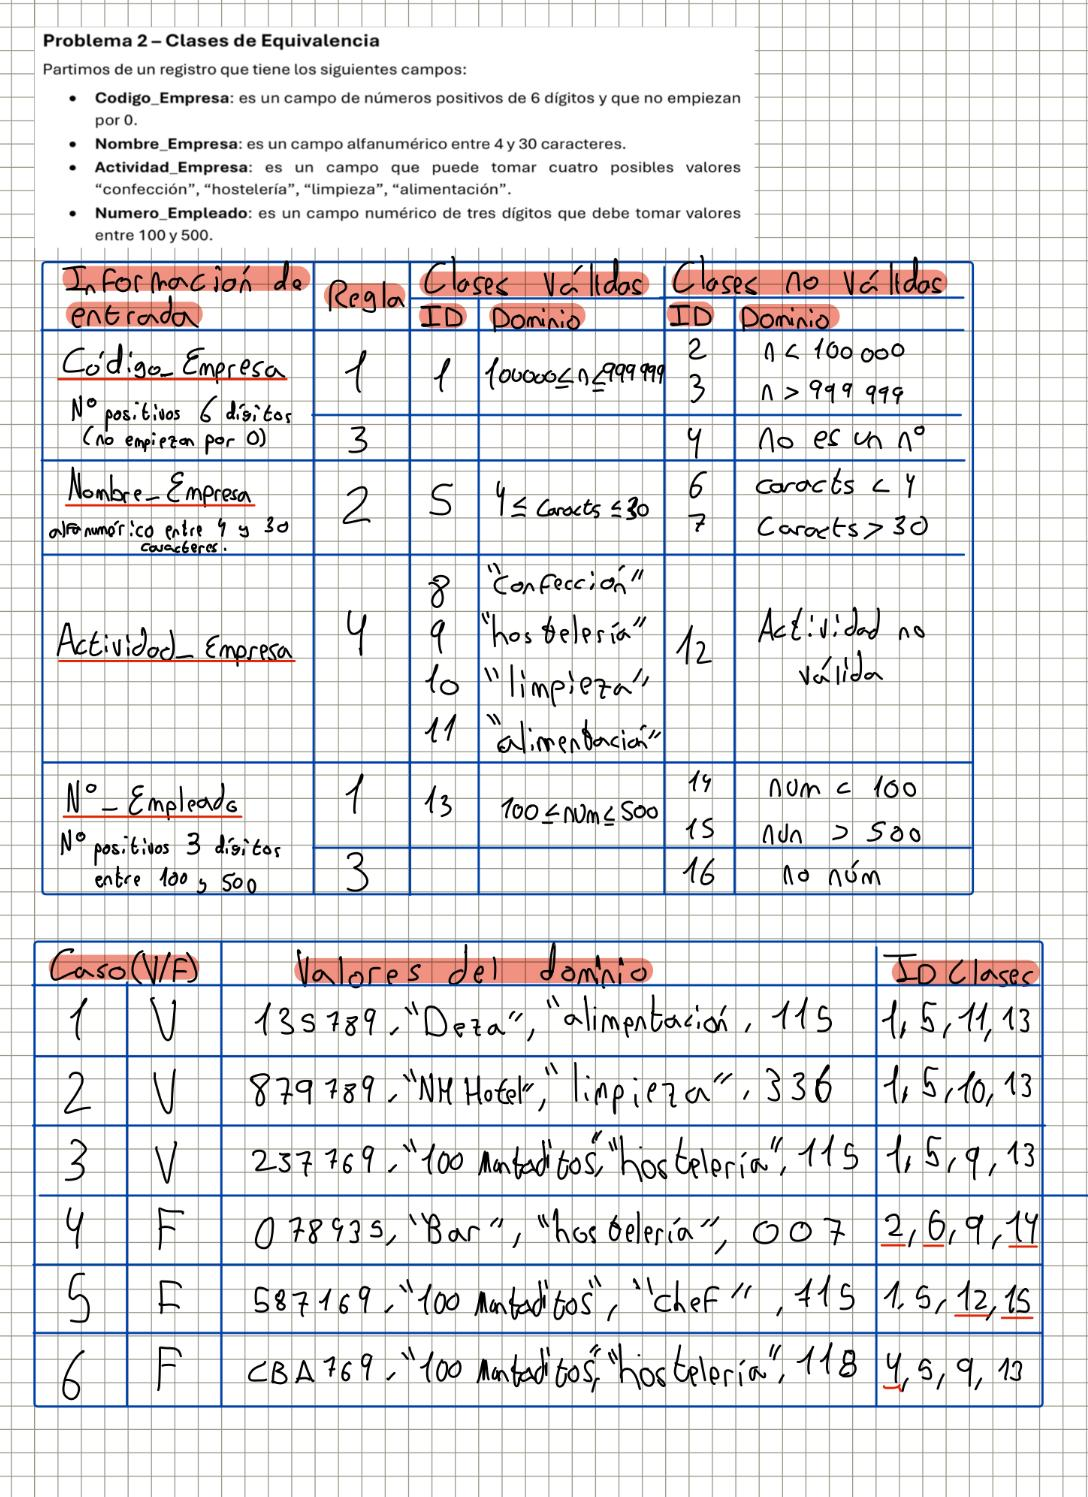 Problema 2 – Clases de Equivalencia
Partimos de un registro que tiene los siguientes campos:
• Codigo_Empresa: es un campo de números positivos de 6 dígitos y que no empiezan
por 0.
• Nombre_Empresa: es un campo alfanumérico entre 4 y 30 caracteres.
• Actividad_Empresa: es un campo que puede tomar cuatro posibles valores
“confección”, “hostelería”, “limpieza”, “alimentación”.
• Numero_Empleado: es un campo numérico de tres dígitos que debe tomar valores
entre 100 y 500.
Información de entrada | Regla | Clases válidas | Clases no válidas
ID | Dominio | ID | Dominio
Código_Empresa
Nº positivos 6 dígitos
(no empiezan por 0)
1 | 1 | 100000≤n≤999999 | 2 | n < 100 000
3 | n > 999 999
3 | 4 | no es un nº
Nombre_Empresa
alfanumérico entre 4 y 30
caracteres.
2 | 5 | 4 ≤ Caracts ≤ 30 | 6 | caracts < 4
7 | Caracts > 30
Actividad_Empresa
4 | 8 | "confección"
9 | "hostelería"
10 | "limpieza"
11 | "alimentación"
12 | Actividad no
válida
Nº_Empleado
Nº positivos 3 dígitos
entre 100 y 500
1 | 13 | 100≤num≤500 | 14 | num < 100
15 | num > 500
3 | 16 | no núm
Caso (V/F) | Valores del dominio | ID Clases
1 | V | 135789, "Deza", "alimentación, 115 | 1, 5, 11, 13
2 | V | 879789, "NH Hotel", "limpieza", 336 | 1, 5, 10, 13
3 | V | 237769, "100 Montaditos", "hostelería", 115 | 1, 5, 9, 13
4 | F | 078935, "Bar", "hostelería", 007 | 2, 6, 9, 14
5 | F | 587169, "100 Montaditos", "chef", 715 | 1, 5, 12, 15
6 | F | CBA769, "100 Montaditos", "hostelería", 118 | 4, 5, 9, 13